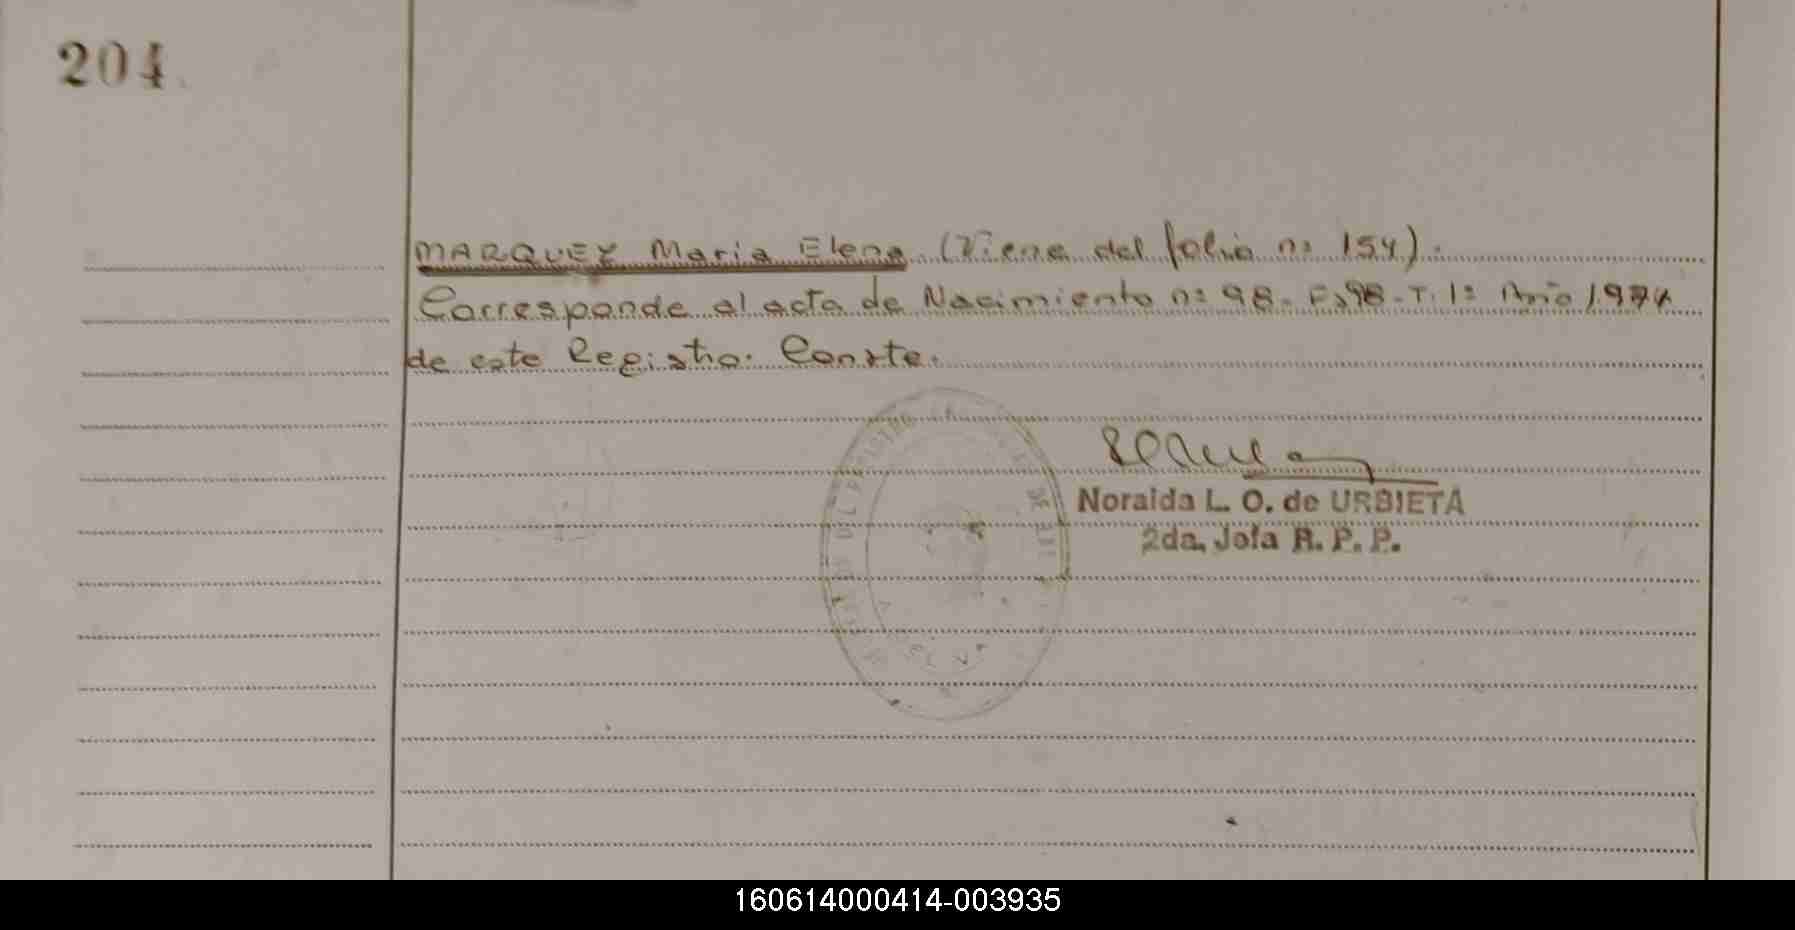 204.
MARQUEZ Maria Elena (Viene del folio nº 154).
Corresponde al acta de Nacimiento nº 98- Fº 98-T. 1º Año 1974
de este Registro. Conste.
Noralda L. O. de URBIETA
2da. Jefa R. P. P.
160614000414-003935